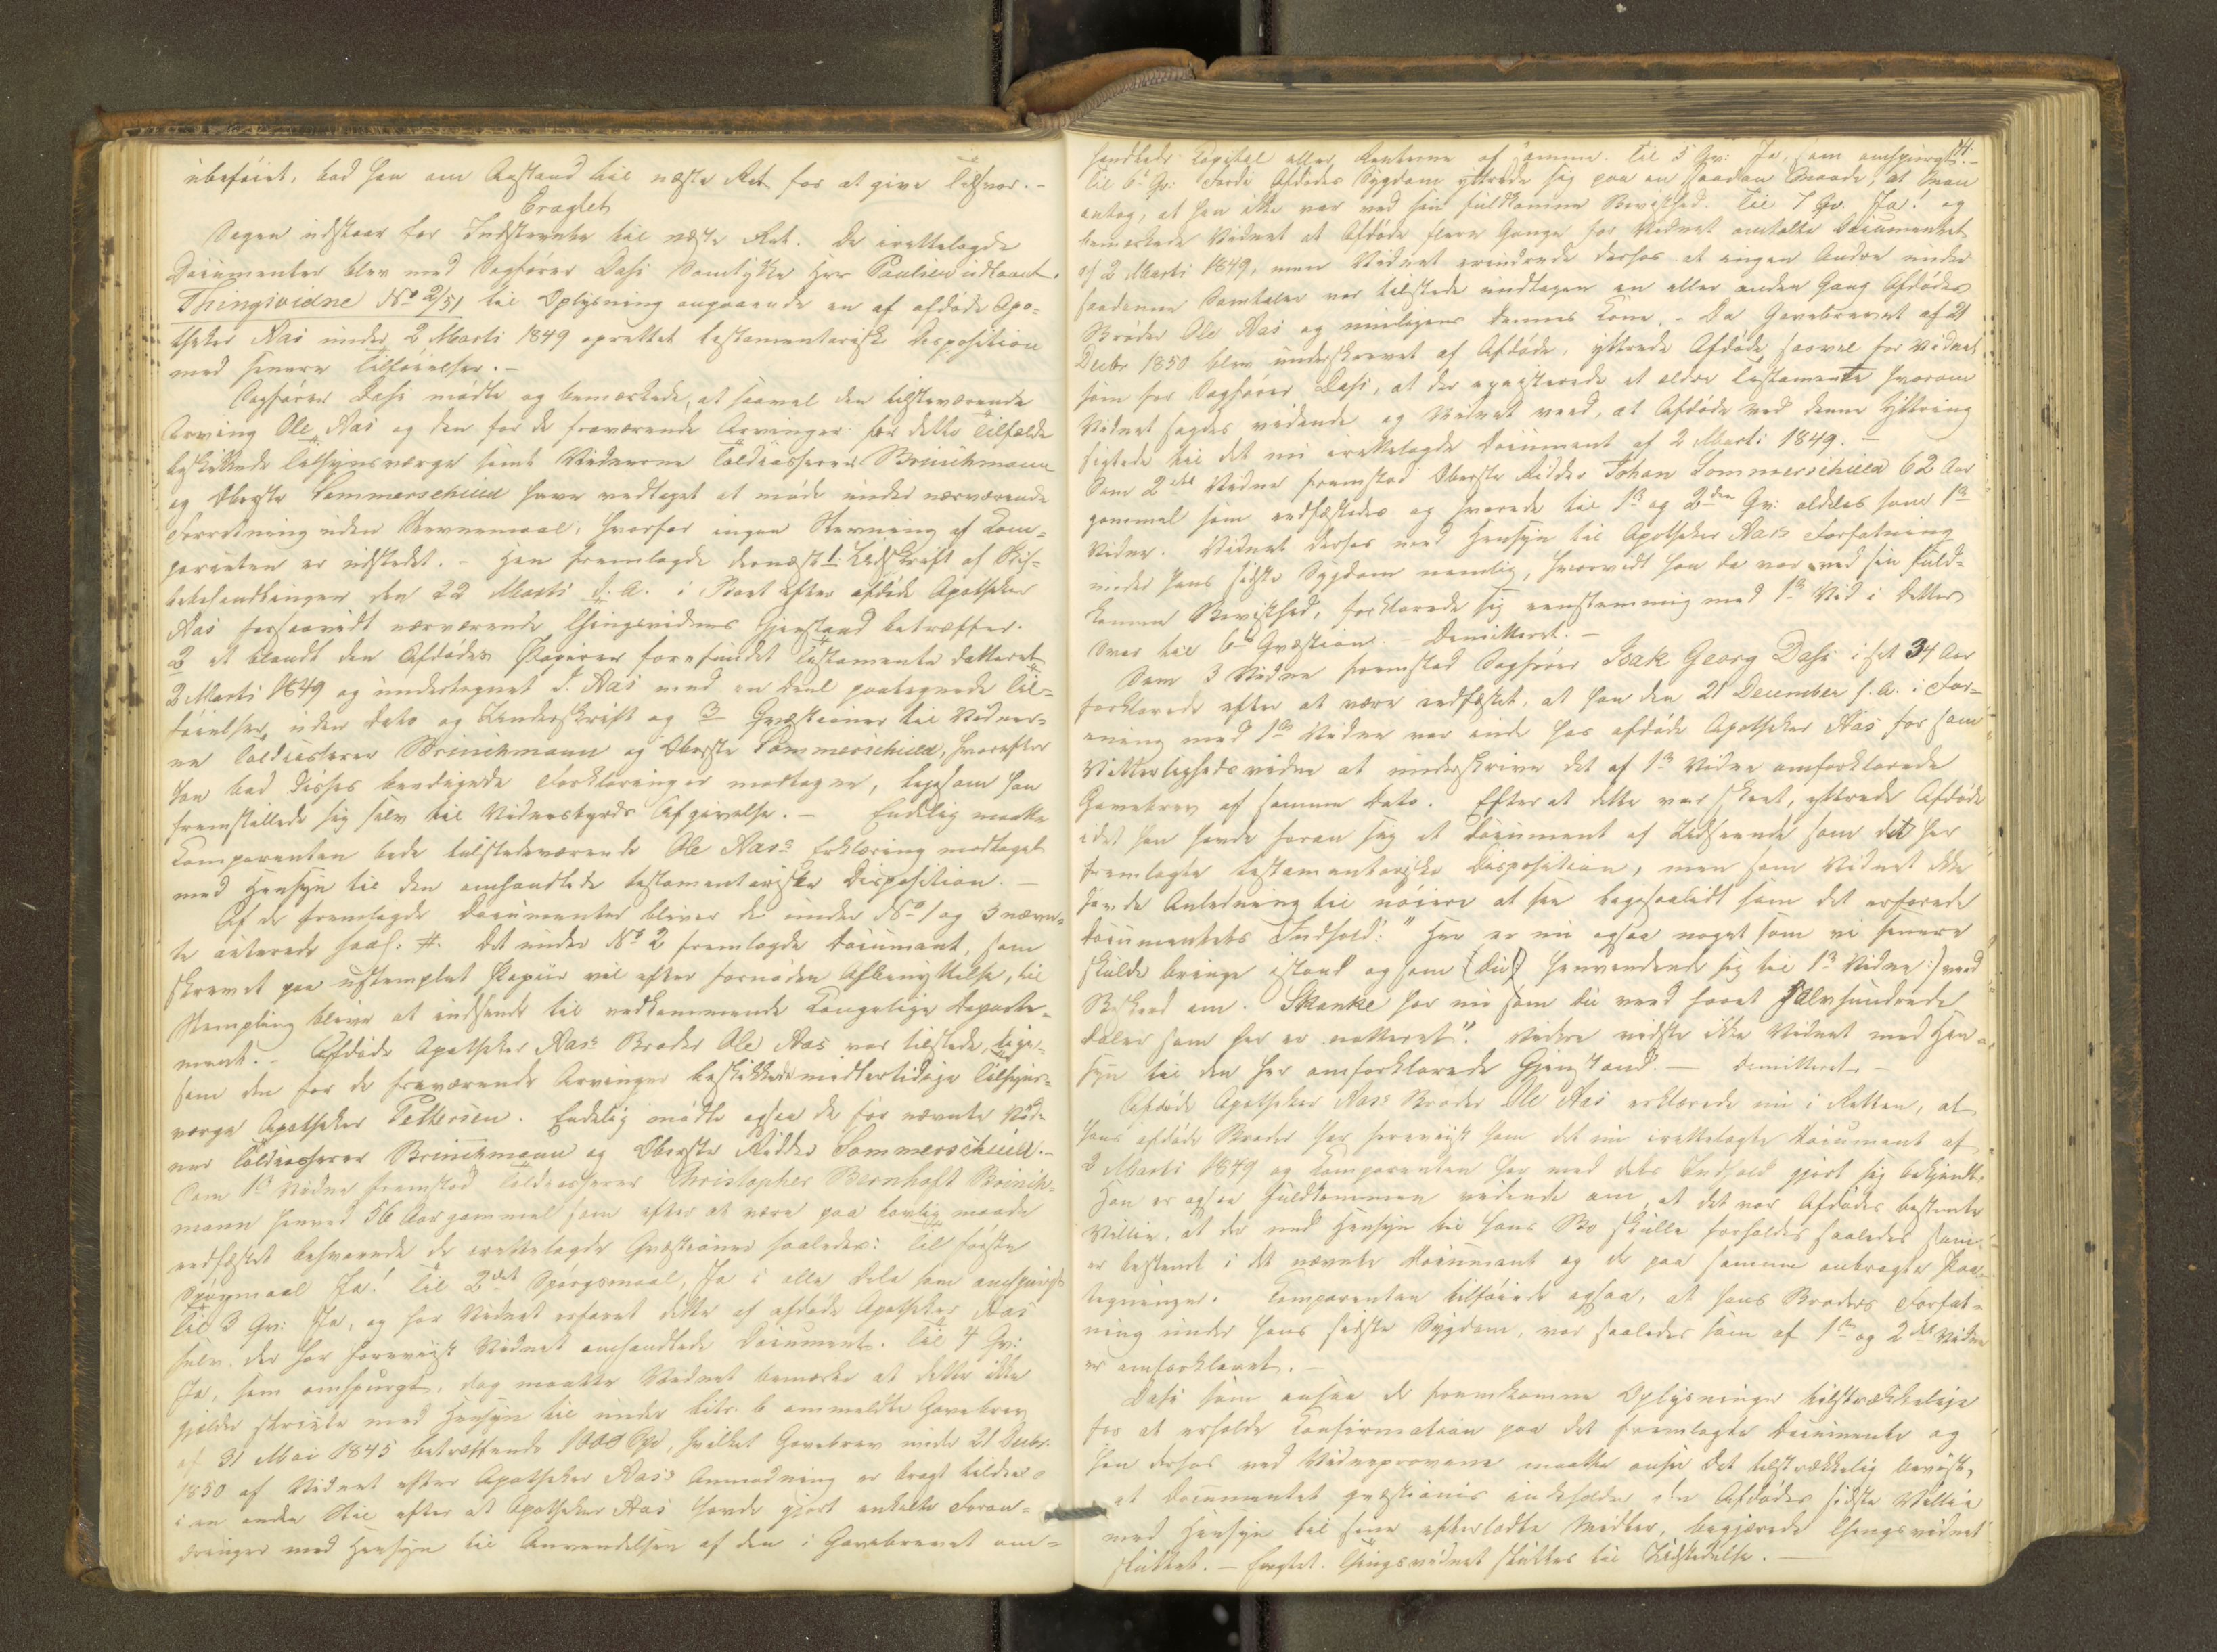 ubeføiet, bad han om Anstand til næste Ret for at give Tilsvar.-
Eragtet
Sagen udstaar for Indstevnte til næste Ret. De irettelagde
Documenter blev med Sagfører Dahs Samtykke Hr Paulsen udlaant.
Thingsvidne No 2/51 til Oplysning angaaende en af afdøde Apo-
theker Aas under 2 Marts 1849 oprettet testamentarisk Disposition
med senere Tilføielser.-
Sagfører Dahs mødte og bemærkede, at saavel den tilstedeværende
Arving Ole Aas og den for de fraværende Arvinger for dette Tilfælde
beskikkede Tilsynsværge samt Vidnerne Toldcasserer Brinchmann
og Oberste Sommerschield have vedtaget at møde under nærværende
Forretning uden Stevnemaal, hvorfor ingen Stevning af Com-
parenten er udstedt. - Han fremlagde dernæst 1. Udskrift af Skif-
tebehandlingen den 22 Marts d. A. i Boet efter afdøde Apotheker
Aas forsaavidt nærværende Thingsvidnes Gjenstand betræffer.
2 et blandt den Afdødes Papirer forefundet Testamente datteret
2 Marts 1849 og undertegnet I. Aas med en Deel paategnede Til-
føielser, uden Dato og Underskrift og 3 Qvæstioner til Vidner-
ne Toldcasserer Brinchmann og Oberste Sommerschield, hvorefter
han bad disses beedigede Forklaringer modtagne, ligesom han
fremstillede sig selv til Vidnesbyrds Afgivelse. - Endelig maatte
Comparenten bede tilstedeværende Ole Aas's Erklæring modtaget
med Hensyn til den omhandlede testamentariske Disposition.-
Af de fremlagde Documenter bliver de under No 1 og 3 nævn-
te acterede saal: #. Det under No 2 fremlagde Document, som
skrevet paa ustemplet Papiir vil efter fornøden Afbenyttelse, til
Stempling blive at indsende til vedkommende Kongelige Departe-
ment. - Afdøde Apotheker Aas's Broder Ole Aas var tilstede, lige-
som den for de fraværende Arvinger beskikkede midlertidige Tilsyns-
værge Apotheker Pettersen. Endelig mødte ogsaa de før nævnte Vid-
ner Toldcasserer Brinchmann og Oberste Ridder Sommerschield.-
Som 1ste Vidne fremstod Toldcasserer Christopher Bernhoft Brinch-
mann henved 56 Aar gammel som efter at være paa lovlig maade
edfæstet besvarede de irettelagde Qvæstioner saaledes: Til første
Spørgsmaal Ja! Til 2det Spørgsmaal, Ja i alle Dele som omspurgt
Til 3 Qv: Ja, og har Vidnet erfaret dette af afdøde Apotheker Aas
selv der har foreviist Vidnet omhandlede Document. Til 4 Qv:
Ja, som omspurgt, dog maatte Vidnet bemærke at dette ikke
gjelder strengte med Hensyn til under litr. b ommeldte Gavebrev
af 31 Mai 1845 betræffende 1000 Spd, hvilket Gavebrev under 21 Decbr.
1850 af Vidnet efter Apotheker Aas's Anmodning er bragt
i en anden Stil efter at Apotheker Aas havde gjort enkelte Foran-
dringer med Hensyn til Anvendelsen af den i Gavebrevet om-
handlede Capital eller Renterne af samme. Til 5 Qv: Ja, som omspurgt.-
Til 6te Qv: Fordi Afdødes Sygdom yttrede sig paa en saadan Maade, at man
antog, at han ikke var ved sin fuldkomne Bevidsthed. Til 7 Qv. Ja! og
bemærkede Vidnet at Afdøde flere Gange for Vidnet omtalte Documentet
af 2 Marts 1849, men Vidnet erindrede derhos at ingen Andre under
saadanne Samtaler var tilstede undtagen en eller anden Gang Afdødes
Broder Ole Aas og muligens dennes Kone. - Da Gavebrevet af 21
Decbr 1850 blev underskrevet af Afdøde, yttrede Afdøde saavel for Vidnet
som for Sagfører Dahs, at der existerede et ældre Testamente hvorom
Vidnet sagdes vidende og Vidnet veed, at Afdøde ved denne Yttring
sigtede til det nu irettelagde Document af 2 Marts 1849.-
Som 2det Vidne fremstod Oberste Ridder Johan Sommerschield 62 Aar
gammel som edfæstedes og svarede til 1ste og 2den Qv: aldeles som 1ste
Vidne. Vidnet derhos med Hensyn til Apotheker Aas's Forfatning
under hans sidste Sygdom nemlig, hvorvidt han da var ved sin fuld-
komne Bevidsthed, forklarede sig eenstemmig med 1ste Vid i dettes
Svar til 6te Qvæstion. - Demitteret.-
Som 3 Vidne fremstod Sagfører Isak Georg Dahs i sit 34 Aar
forklarede efter at være edfæstet, at han den 21 December f. A. i For-
ening med 1ste Vidne var inde hos afdøde Apotheker Aas for som
Vitterlighedsvidne at underskrive det af 1ste Vidne omforklarede
Gavebrev af samme Dato. Efter at dette var skeet, yttrede Afdøde
idet han havde foran sig et Document af Udseende som det her
fremlagte testamentariske Disposition, men som Vidnet ikke
havde Anledning til nøiere at see ligesaalidt som det erfarede
Documentets Indhold: "Her er nu ogsaa noget som vi senere
skulde bringe istand og som (Du) henvendende sig til 1ste Vidne:) veed
Beskeed om. Skanke har nu som Du veed faaet halvhundrede
Daler som her er notteret". Videre vidste ikke Vidnet med Hen-
syn til den her omforklarede Gjenstand. - Demitteret.-
Afdøde Apotheker Aas's Broder Ole Aas erklærede nu i Retten, at
hans afdøde Broder har foreviist ham det nu irettelagte Document af
2 Marts 1849 og Comparenten har med dets Indhold gjort sig bekjendt.
Han er ogsaa fuldkommen vidende om, at det var Afdødes bestemte
Villie, at der med Hensyn til hans Bo skulle forholdes saaledes som
er bestemt i det nævnte Document og de paa samme anbragte Paa-
tegninger. Comparenten tilføiede ogsaa, at hans Broders Forfat-
ning under hans sidste Sygdom, var saaledes som af 1ste og 2det Vidne
er omforklaret.-
Dahs som ansaa de fremkomne Oplysninger tilstrækkelige
for at erholde Confirmation paa det fremlagte Document og
han derhos ved Vidneprovene maatte ansee det tilstrækkelig beviist,
at Documentet qvæstionis indeholder den Afdødes sidste Villie
med Hensyn til sine efterladte Midler, begjærede Thingsvidnet
sluttet. - Eragtet. Thingsvidnet sluttes til Udstedelse.-